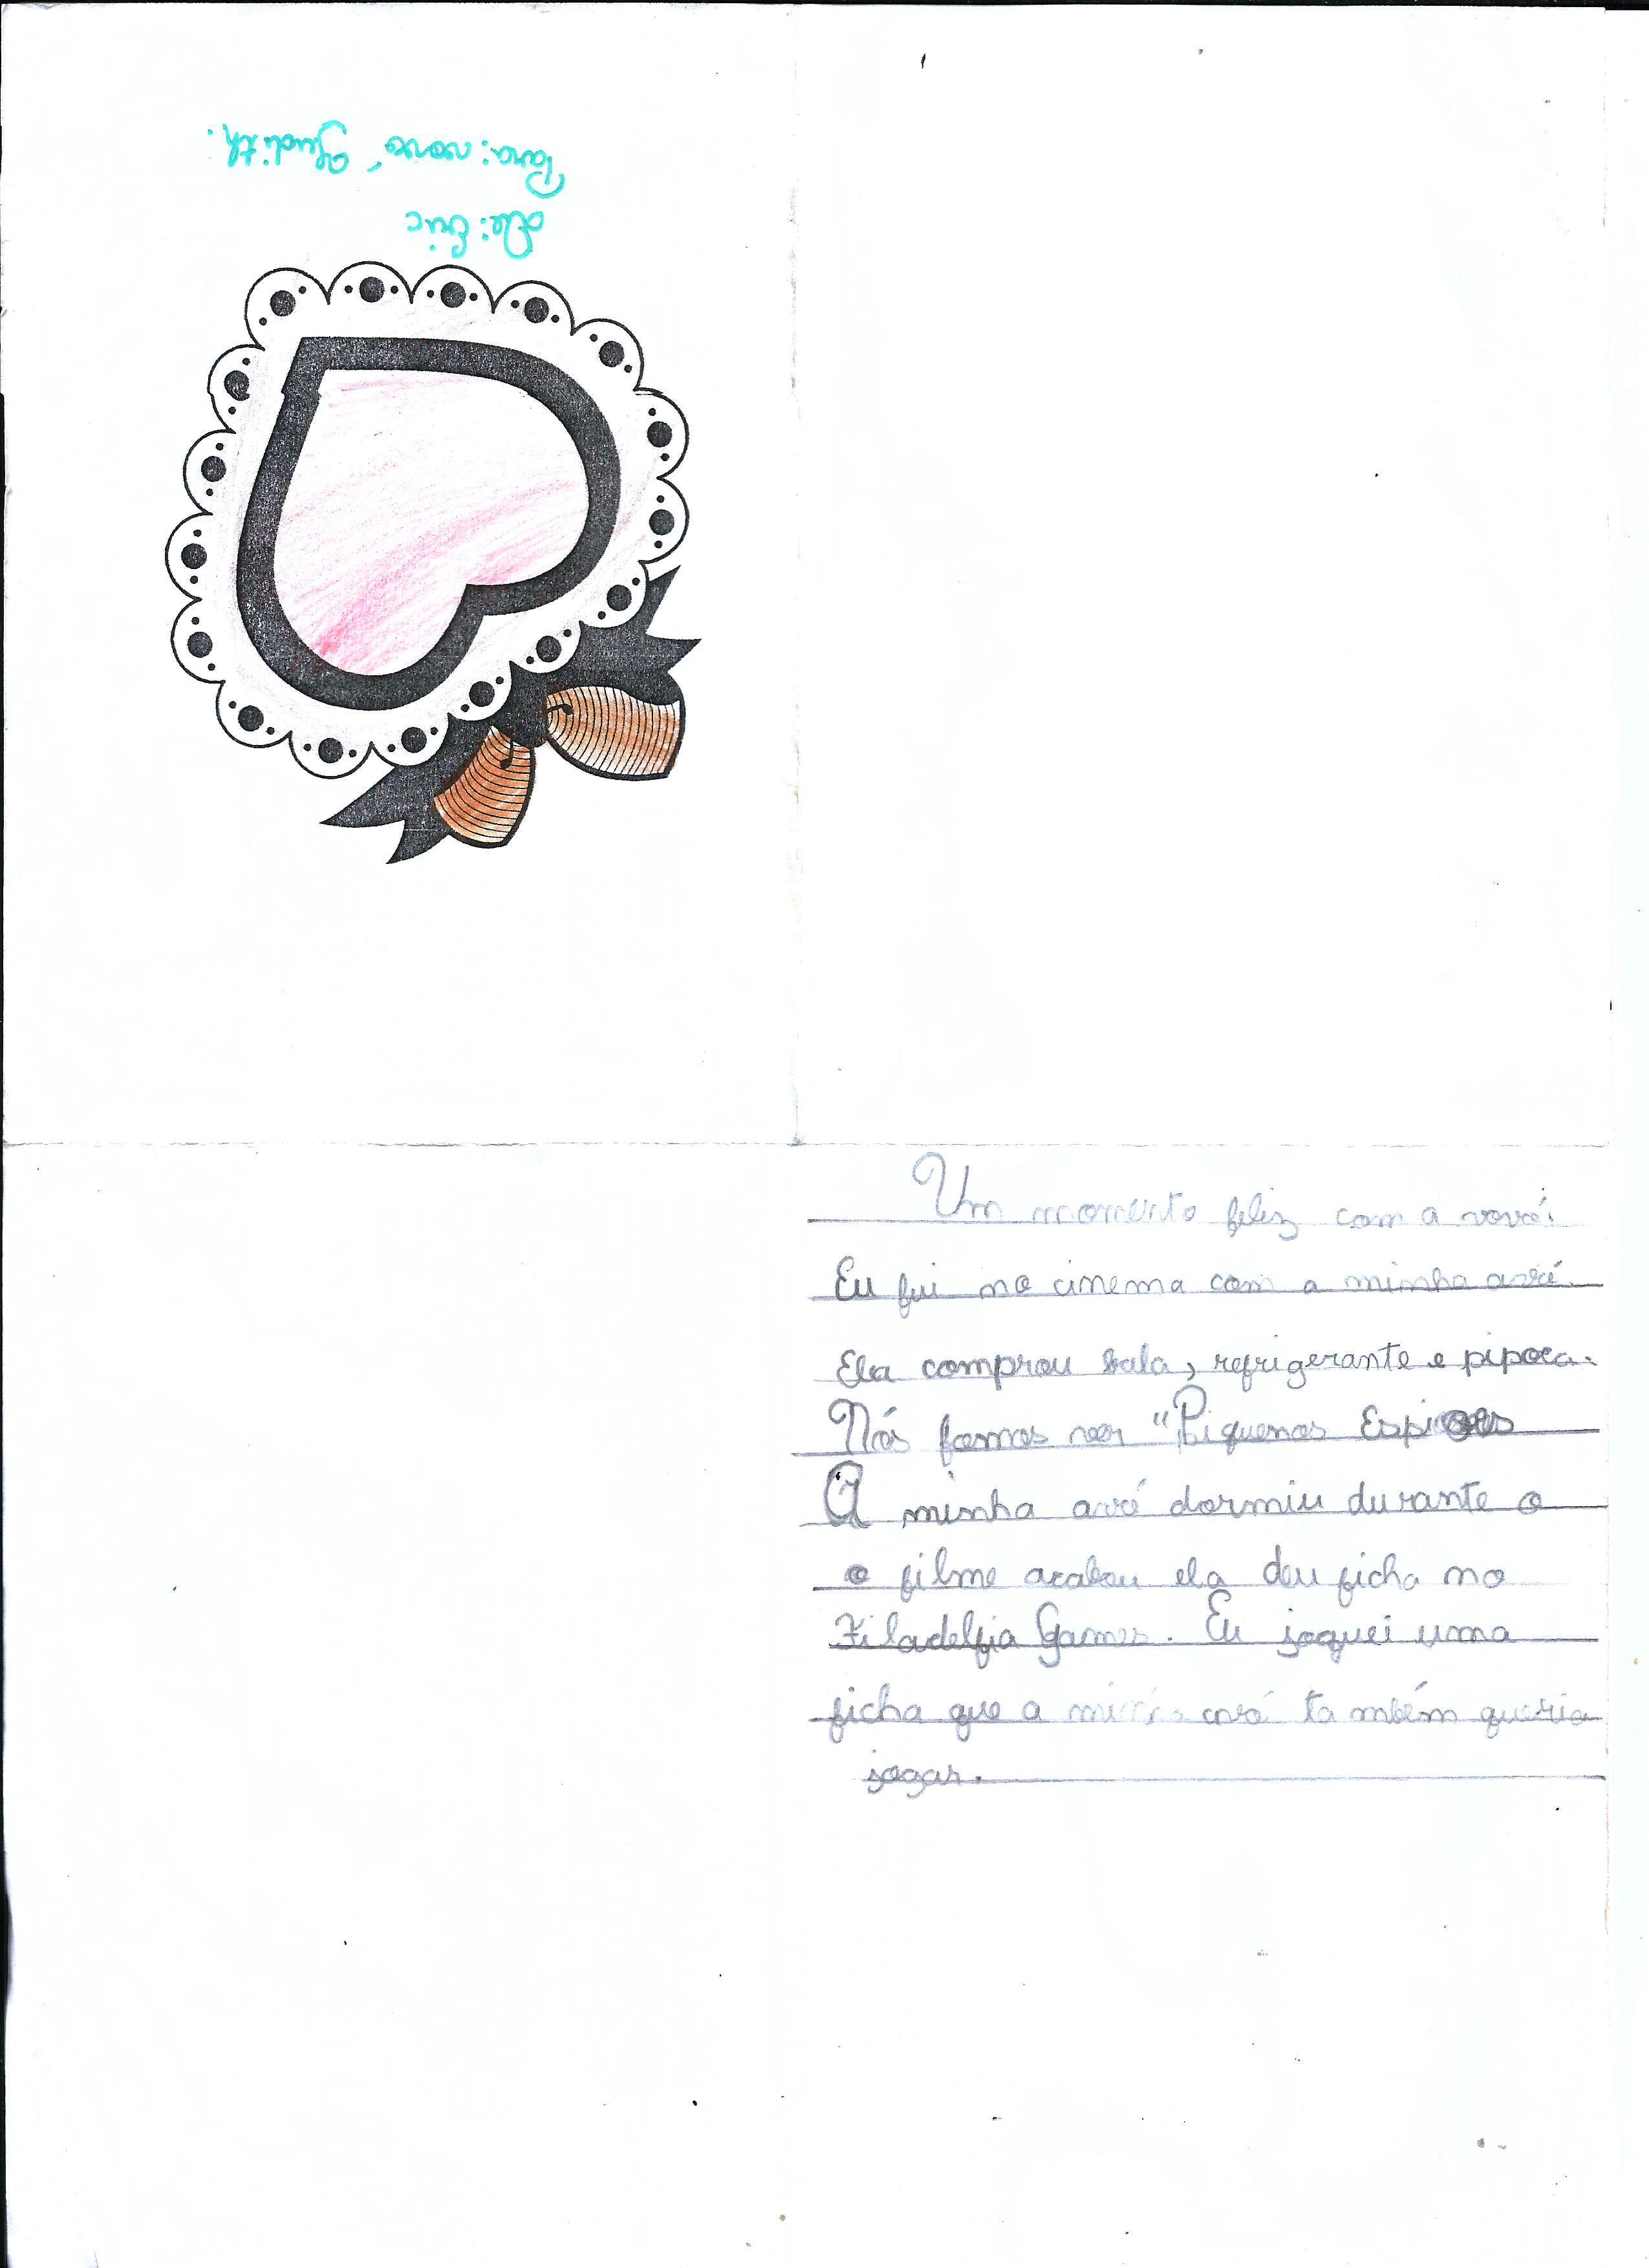 De: Eric
Para: vovó Judith.
Um momento feliz com a vovó.
Eu fui no cinema com a minha avó.
Ela comprou bala, refrigerante e pipoca.
Nós fomos ver "Piquenos Espiões
A minha avó dormiu durante o
o filme acabou ela deu ficha no
Filadelfia Games. Eu joguei uma
ficha que a minha avó também queria
jogar.